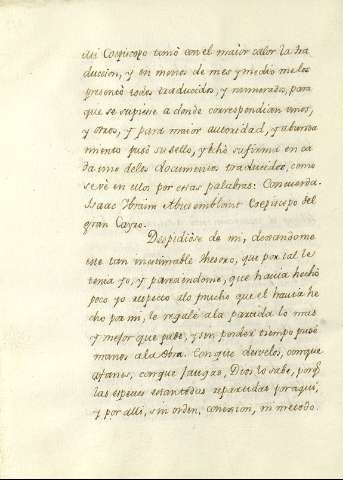 Coepiscopo tomò con el maior calor la tra
duccion, y en menos de mes y medio me los
presentò todos traducidos, y numerados, para
que se supiese a donde correspondian unos,
y otros, y para maior autoridad, y abunda
miento pusò su sello, y echò su firma en ca
da uno de los documentos traducidos, como
se vè en ellos por estas palabras: Concuerda.
Isaac Ibraim Coepiscopo del
gran Cayro.
Despidiòse de mi, dexandome
este tan inestimable thesoro, que por tal le
tenia yo, y pareciendome, que havia hecho
poco yo respecto alo mucho que el havia he
cho por mi, le regalè a la partida lo mas
y mejor que pude, y sin perder tiempo pusè
manos a la obra. Con que desvelos, con que
afanes, con que fatigas, Dios lo sabe, porq.
las especies estan todas repartidas por aqui,
y por alli, sin orden, conexion, ni metodo.